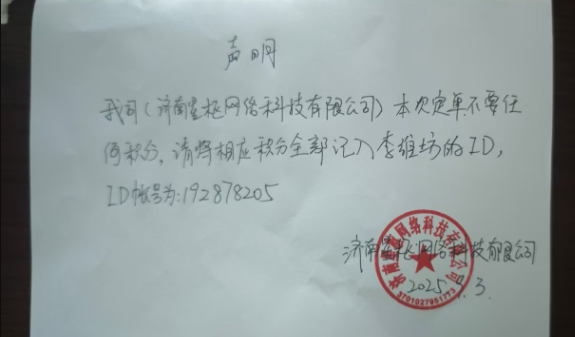 声明
我司(济南星柜网络科技有限公司)本次定单不要任
何积分,请将相应积分全部记入李维坊的ID,
ID帐号为:192878205
济南星柜网络科技有限公司
2025 . 3.
3701027951773